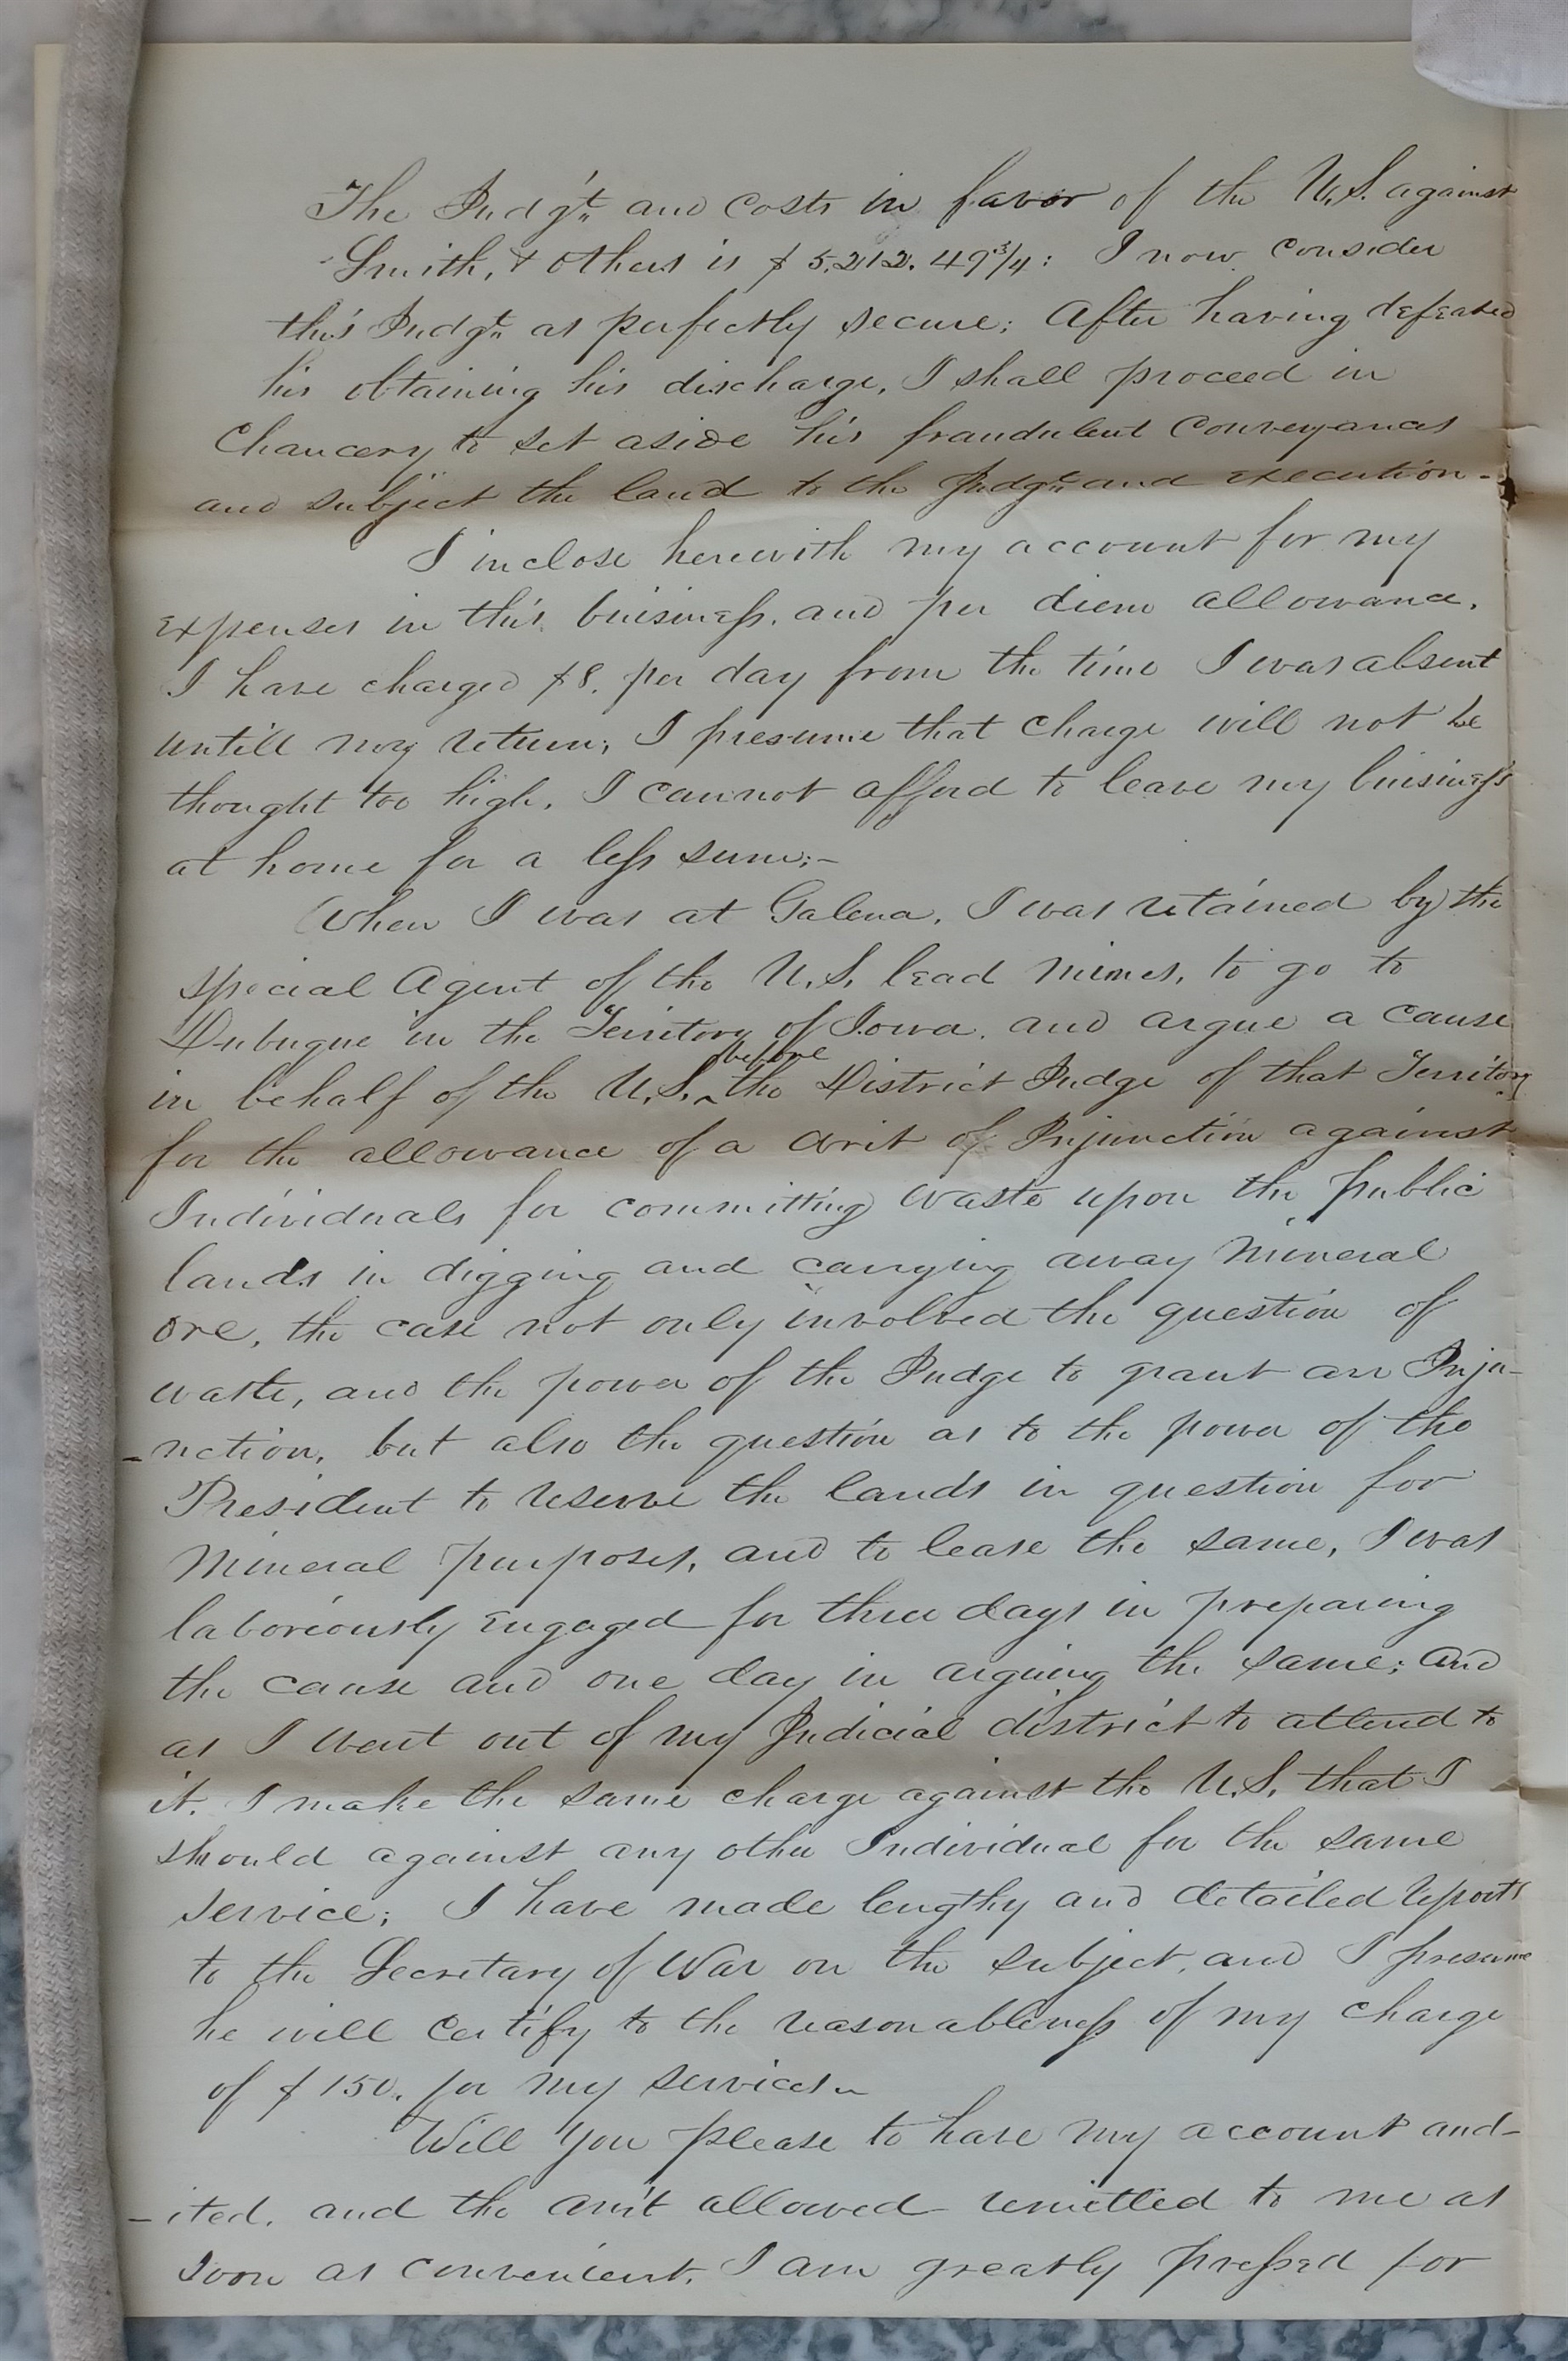 The Judg't. and costs in favor of the U.S. against
Smith, & others is $5.212.49 3/4: I now consider
this Judgt. as perfectly secure; After having defeated
his obtaining his discharge, I shall proceed in
Chancery to set aside his fraudulent conveyances
and subject the land to the Judgt. and execution-
I inclose herewith my account for my
expenses in this buisiness, and per diem allowance.
I have charged $8. per day from the time I was absent
untill my return; I presume that charge will not be
thought too high. I cannot afford to leave my buisiness
at home for a less sum;-
When I was at Galena, I was retained by the
special Agent of the U.S. lead mines, to go to
Dubuque in the Territory of Iowa, and argue a cause
in behalf of the U.S. ^before the District Judge of that Territory
for the allowance of a writ of Injunction against
Individuals for committing waste upon the public
lands in digging and carrying away Mineral
ore, the case not only involved the question of
waste, and the power of the Judge to grant an Inju-
-nction, but also the question as to the power of the
President to reserve the lands in question for
Mineral purposes, and to lease the same, I was
laboriously engaged for three days in preparing
the cause and one day in arguing the same; and
as I went out of my Judicial district to attend to
it. I make the same charge against the U.S. that I
should against any other Individual for the same
service; I have made lengthy and detailed reports
to the Secretary of War on the subject, and I presume
he will certify to the reasonableness of my charge
of $150. for my services-
Will you please to have my account aud-
-ited, and the am't allowed remitted to me as
soon as convenient. I am greatly pressed for